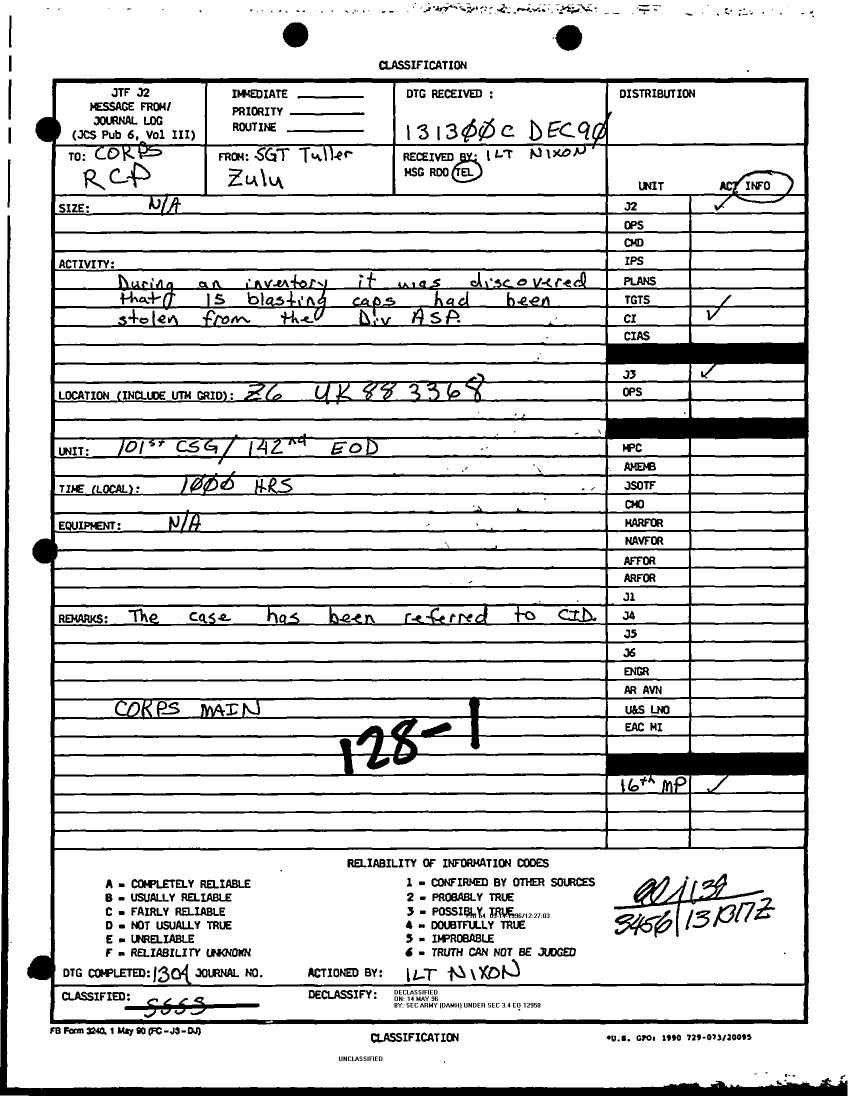 CLASSIFICATION
JTF J2
MESSAGE FROM/
JOURNAL LOG
(JCS Pub 6, Vol III)
IMMEDIATE
PRIORITY
ROUTINE
DTG RECEIVED :
131300C DEC90
DISTRIBUTION
TO: CORPS
RCP
FROM: SGT Tuller
Zulu
RECEIVED BY: 1LT NIXON
MSG RDO TEL
UNIT ACT INFO
SIZE: N/A
J2 ✓
OPS
CMD
ACTIVITY:
IPS
During an inventory it was discovered
PLANS
that 15 blasting caps had been
TGTS
stolen from the Div ASP.
CI ✓
CIAS
J3 ✓
LOCATION (INCLUDE UTM GRID): ZG UK 883368
OPS
UNIT: 101st CSG/142nd EOD
MPC
AMEMB
TIME (LOCAL): 1000 HRS
JSOTF
CMO
EQUIPMENT: N/A
MARFOR
NAVFOR
AFFOR
ARFOR
J1
REMARKS: The case has been referred to CID.
J4
J5
J6
ENGR
AR AVN
CORPS MAIN
U&S LNO
EAC MI
128-1
16th MP ✓
RELIABILITY OF INFORMATION CODES
A = COMPLETELY RELIABLE
B = USUALLY RELIABLE
C = FAIRLY RELIABLE
D = NOT USUALLY TRUE
E = UNRELIABLE
F = RELIABILITY UNKNOWN
1 = CONFIRMED BY OTHER SOURCES
2 = PROBABLY TRUE
3 = POSSIBLY TRUE
4 = DOUBTFULLY TRUE
5 = IMPROBABLE
6 = TRUTH CAN NOT BE JUDGED
3456 131317Z
DTG COMPLETED: 1304 JOURNAL NO.
ACTIONED BY: 1LT NIXON
CLASSIFIED:
DECLASSIFY:
DECLASSIFIED
ON: 14 MAY 96
BY: SEC ARMY (DAMH) UNDER SEC 3.4 EO 12958
FB Form 3240, 1 May 90 (FC-J3-DJ)
CLASSIFICATION
*U.S. GPO: 1990 729-073/20095
UNCLASSIFIED